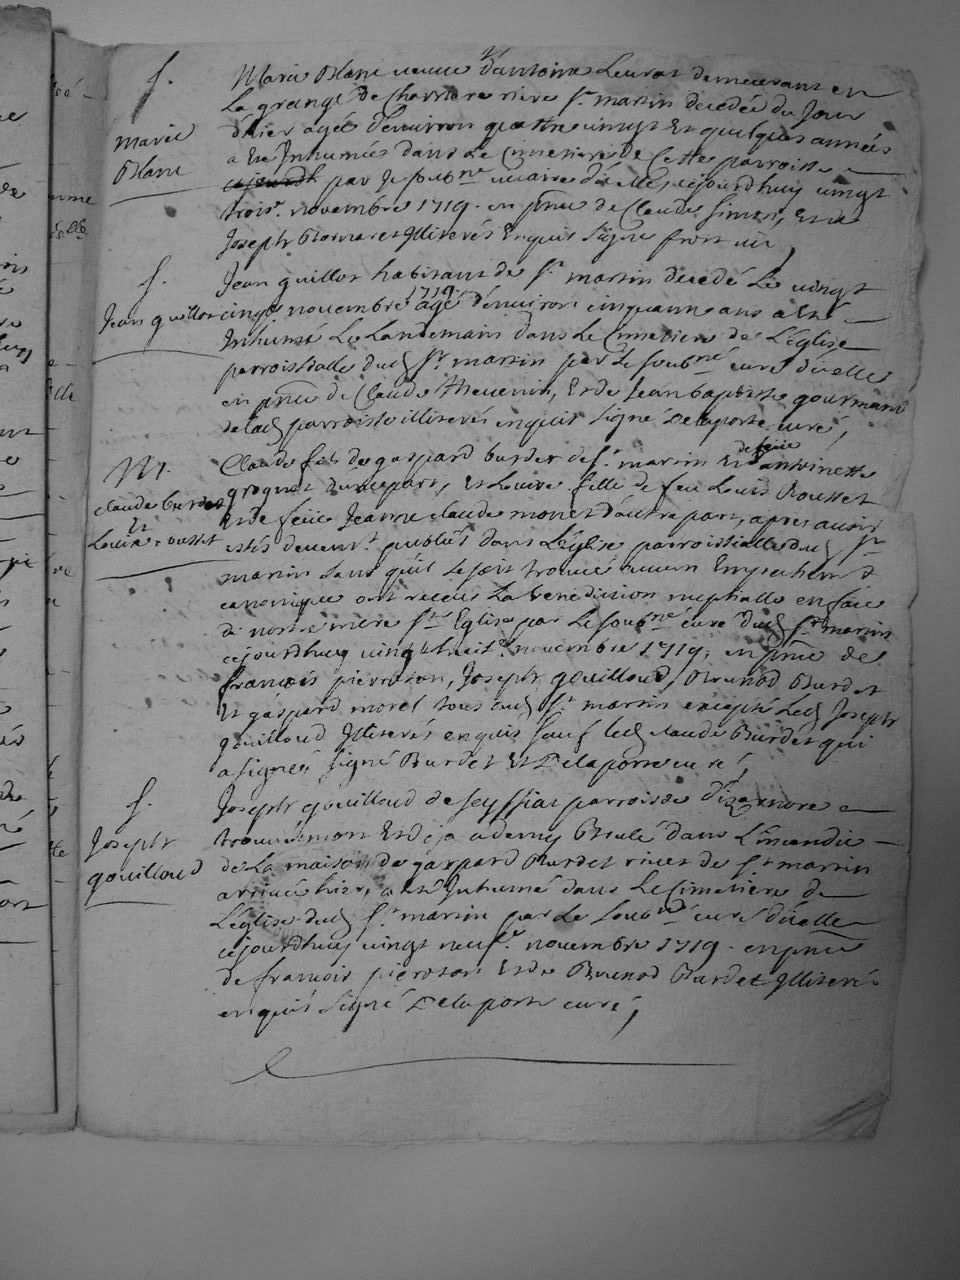 f.
Marie Blanc veuve d'antoine Levrat demeurant en
La grange de Charriere rière St martin decedée du Jour
marie
Blanc
d'hier agée d'environ quattre vingt Et quelques années
a Eté Inhumée dans Le Cimetiere de Cette parroisse
par Je soubné vicaire d'icelle cejourdhuy vingt
trois novembre 1719. en pnce de Claude Et de
Joseph Illiterés Enquis Signé
f.
Jean quillot
Jean quillot habitant de St martin decedé Le vingt
cinq novembre 1719 agé d'environ cinquante ans a Eté
Inhumé Le Landemain dans Le Cimetiere de L'Eglise
parroissialle dud St martin par Le soubné curé d'icelle
en pnce de Claude thevenin, Et de Jean baptiste gourmand
de lad parroisse illiterés enquis Signé Delaporte curé,
M.
claude burdet
Et
Louise rousset
Claude fils de gaspard burdet de St martin Et de feüe antoinette
grognet d'une part, Et Louise fille de feu Louis Rousset
Et de feüe Jeanne claude monet d'autre part, apres avoir
estés devemt publiés dans L'église parroissialle dud St
martin sans qu'il se soit trouvé aucun Empechemt
canonique ont receus La benediction nuptialle en face
de nostre mere ste Eglise par Le soubné curé dud St martin
cejourdhuy vingt huit novembre 1719, en pnce de
françois pierroson, Joseph gouilloud, Brunod Burdet
Et gaspard morel tous dud St martin excepté Led Joseph
gouilloud Illiterés enquis sauf led claude Burdet qui
a signé, signé Burdet Et Delaporte curé,
f.
Joseph
gouilloud
Joseph gouilloud de seyssiat parroisse d'izernore
trouvé mort Et deja a demy Brulé dans L'incendie
de La maison de gaspard Burdet rière de St martin
arrivé hier, a eté Inhumé dans Le Cimetiere de
L'église dud St martin par Le soubné curé d'icelle
cejourdhuy vingt neuf novembre 1719. en pnce
de françois pierroson Et de Brunod Burdet Illiterés
enquis signé Delaporte curé,